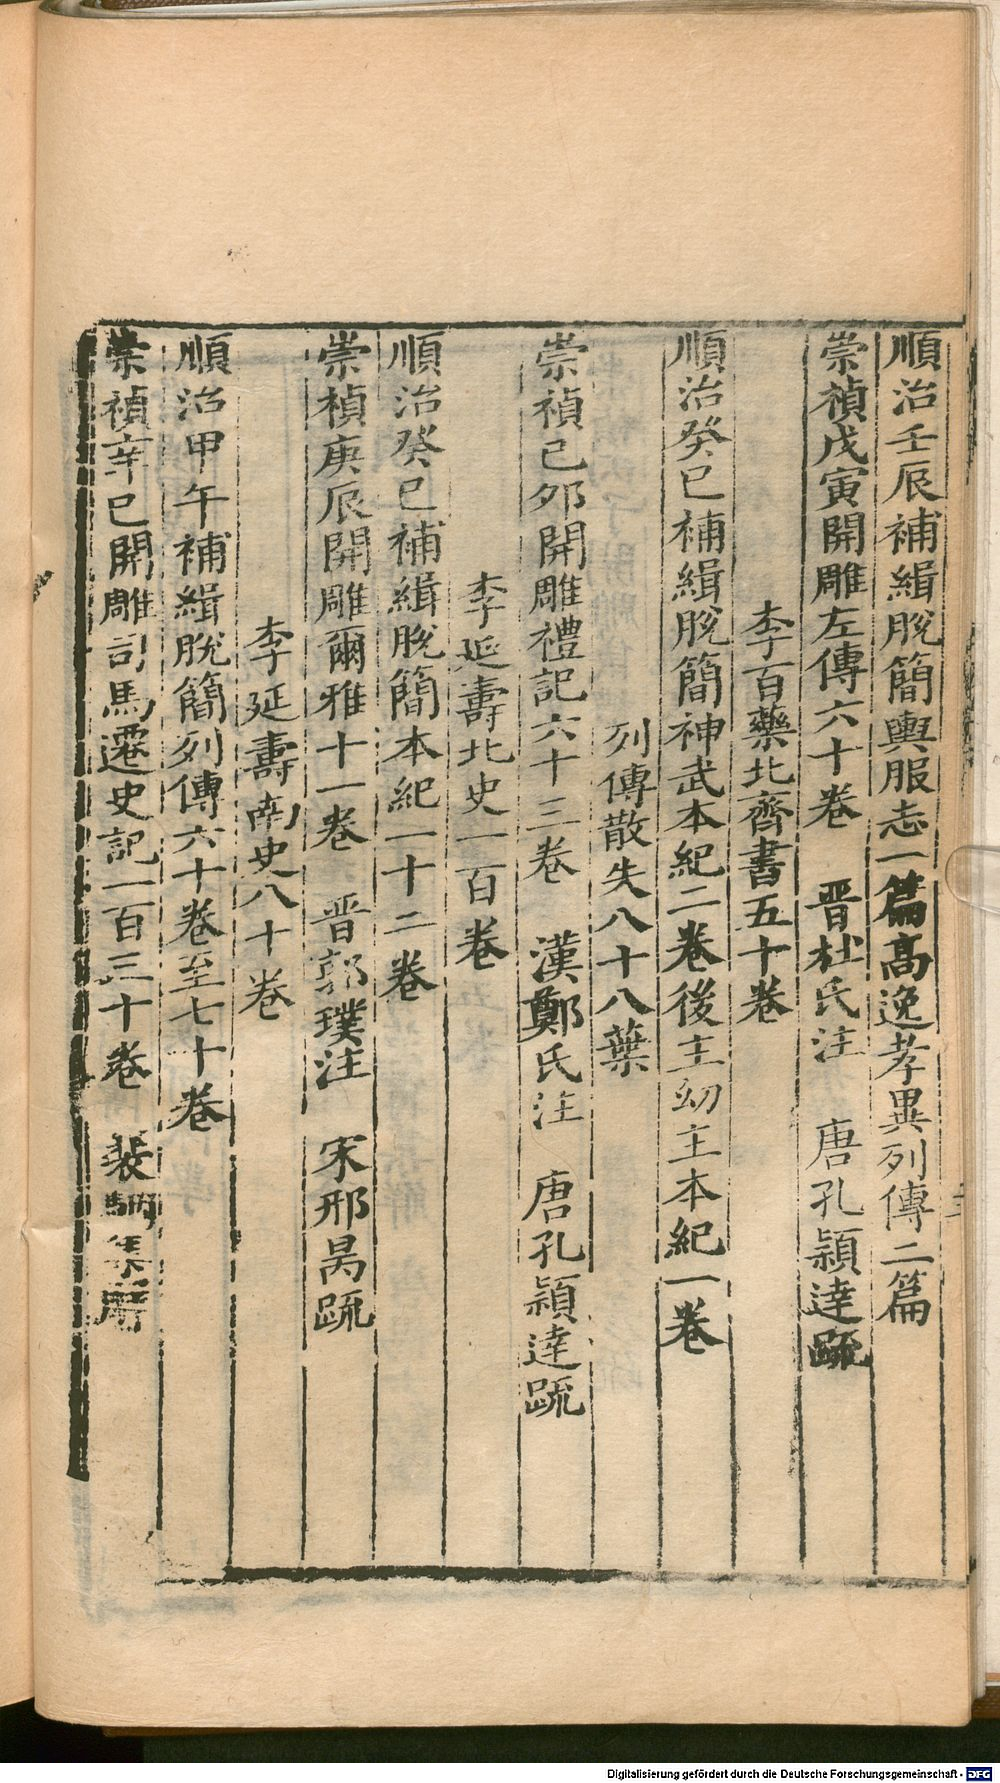 順治壬辰補緝脫簡輿服志一篇高逸孝異列傳二篇
崇禎戊寅開雕左傳六十卷　晋杜氏注　唐孔穎達疏
李百藥北齊書五十卷
順治癸巳補緝脫簡神武本紀二卷後主幼主本紀一卷
列傳散失八十八葉
崇禎己卯開雕禮記六十三卷　漢鄭氏注　唐孔穎達疏
李延壽北史一百卷
順治癸巳補緝脫簡本紀一十二卷
崇禎庚辰開雕爾雅十一卷　晋郭璞注　宋邢昺疏
李延壽南史八十卷
順治甲午補緝脫簡列傳六十卷至七十卷
崇禎辛巳開雕司馬遷史記一百三十卷　裴駰集解
Digitalisierung gefördert durch die Deutsche Forschungsgemeinschaft - DFG